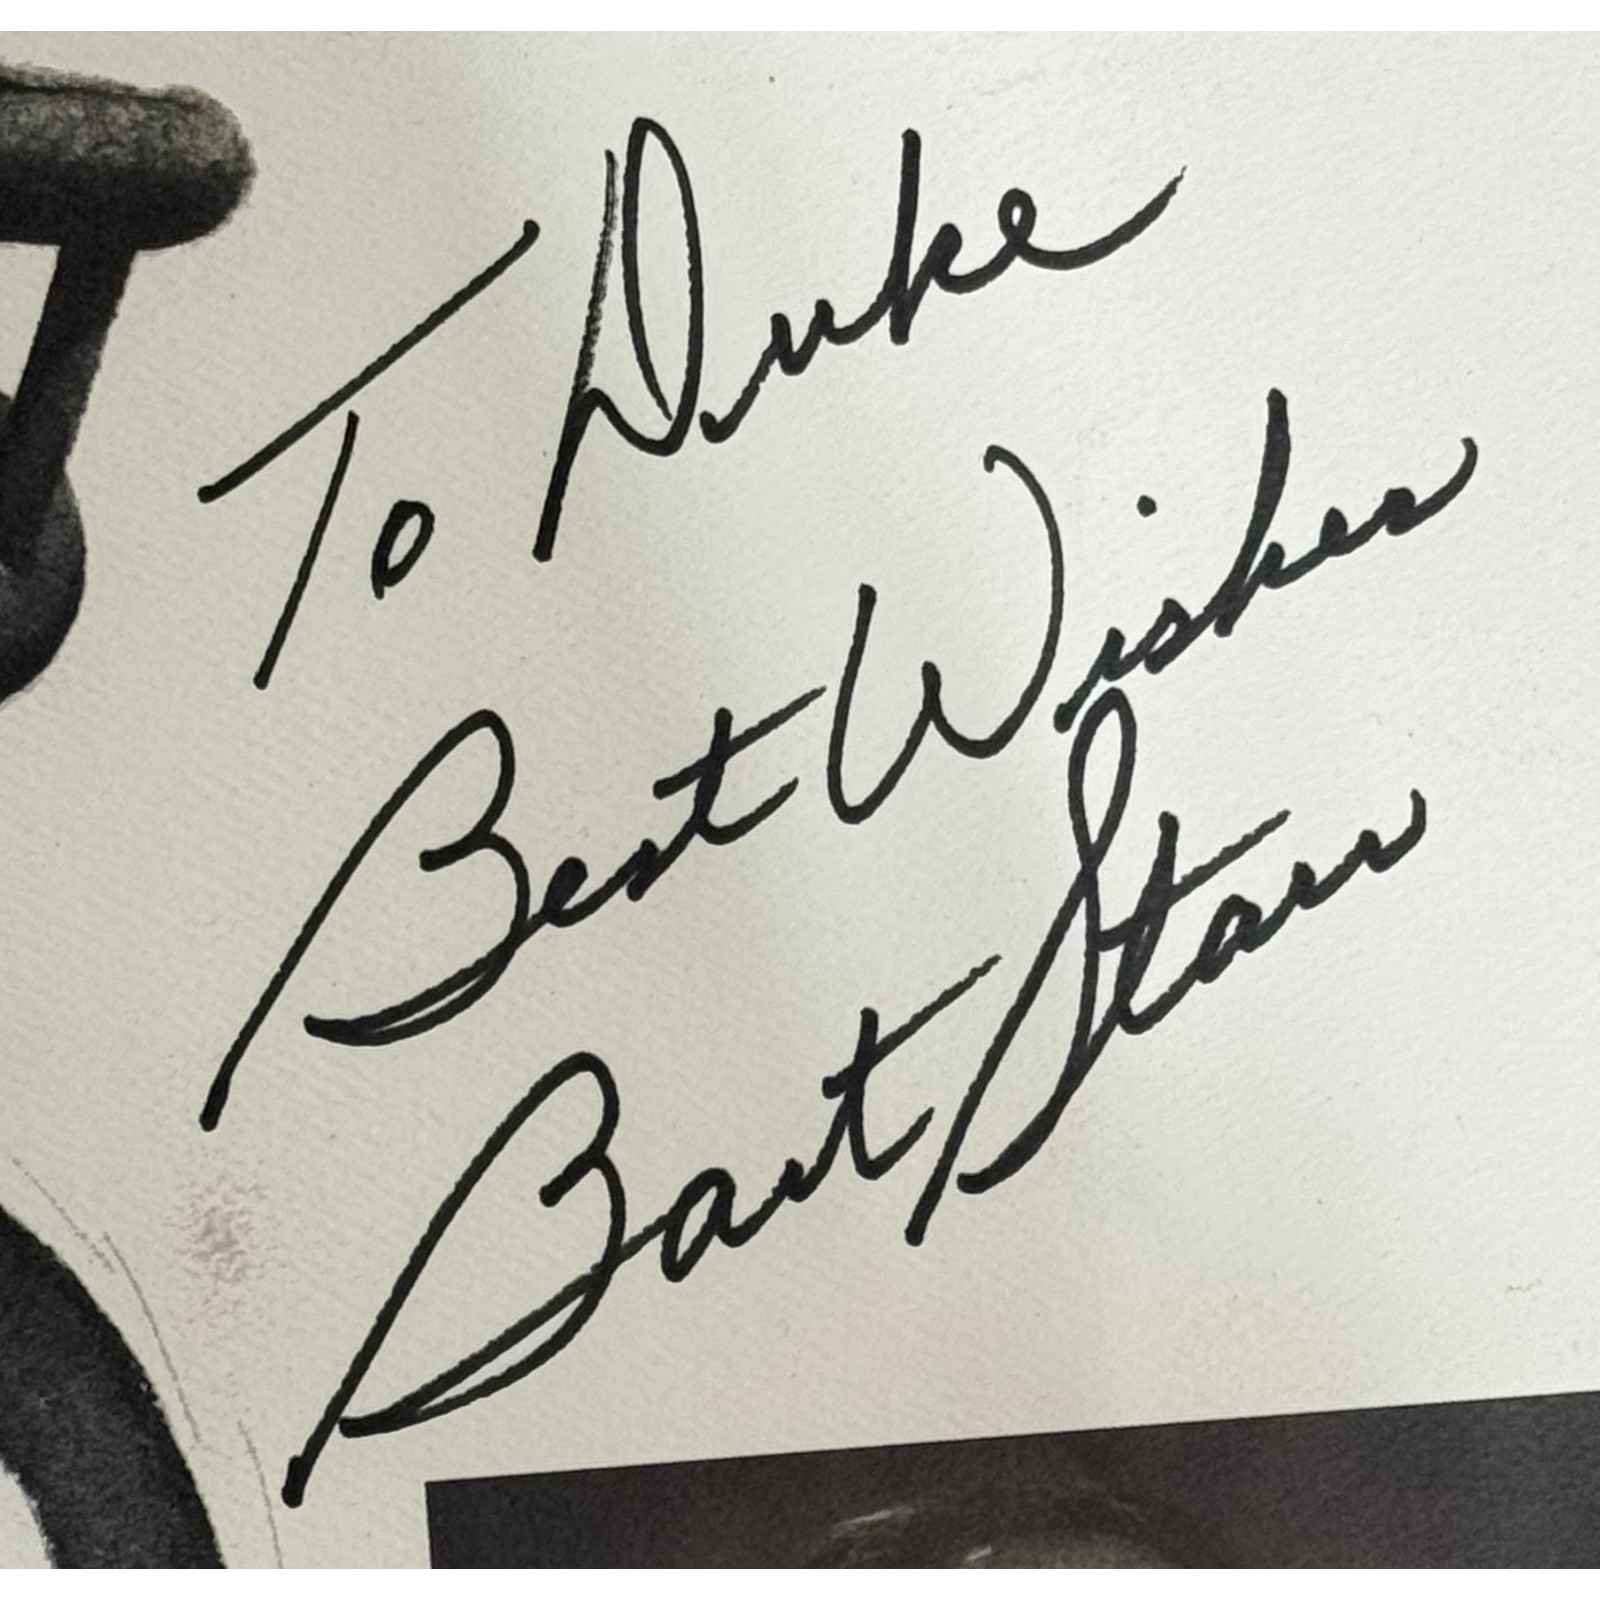 To Duke
Best Wishes
Bart Starr